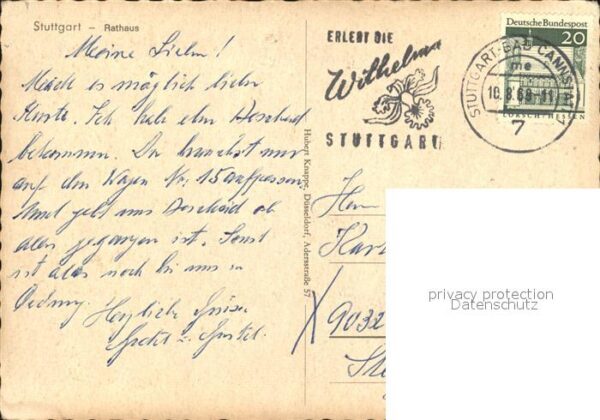 Stuttgart – Rathaus
Meine Lieben!
Mach es möglich lieber
Ich hab den Bescheid
bekommen. Du brauchst nur
auf den Wagen Nr. 15 aufpassen.
Und gebt uns Bescheid ob
alles gegangen ist. Sonst
ist alles noch bei uns in
Ordnung.
Herzliche Grüsse
Hubert Knappe, Düsseldorf, Adersstraße 57
ERLEBT DIE
Wilhelma
STUTTGART
STUTTGART-BAD CANNSTATT
me
7
Deutsche Bundespost
20
LORSCH/HESSEN
Herrn
9032
privacy protection
Datenschutz